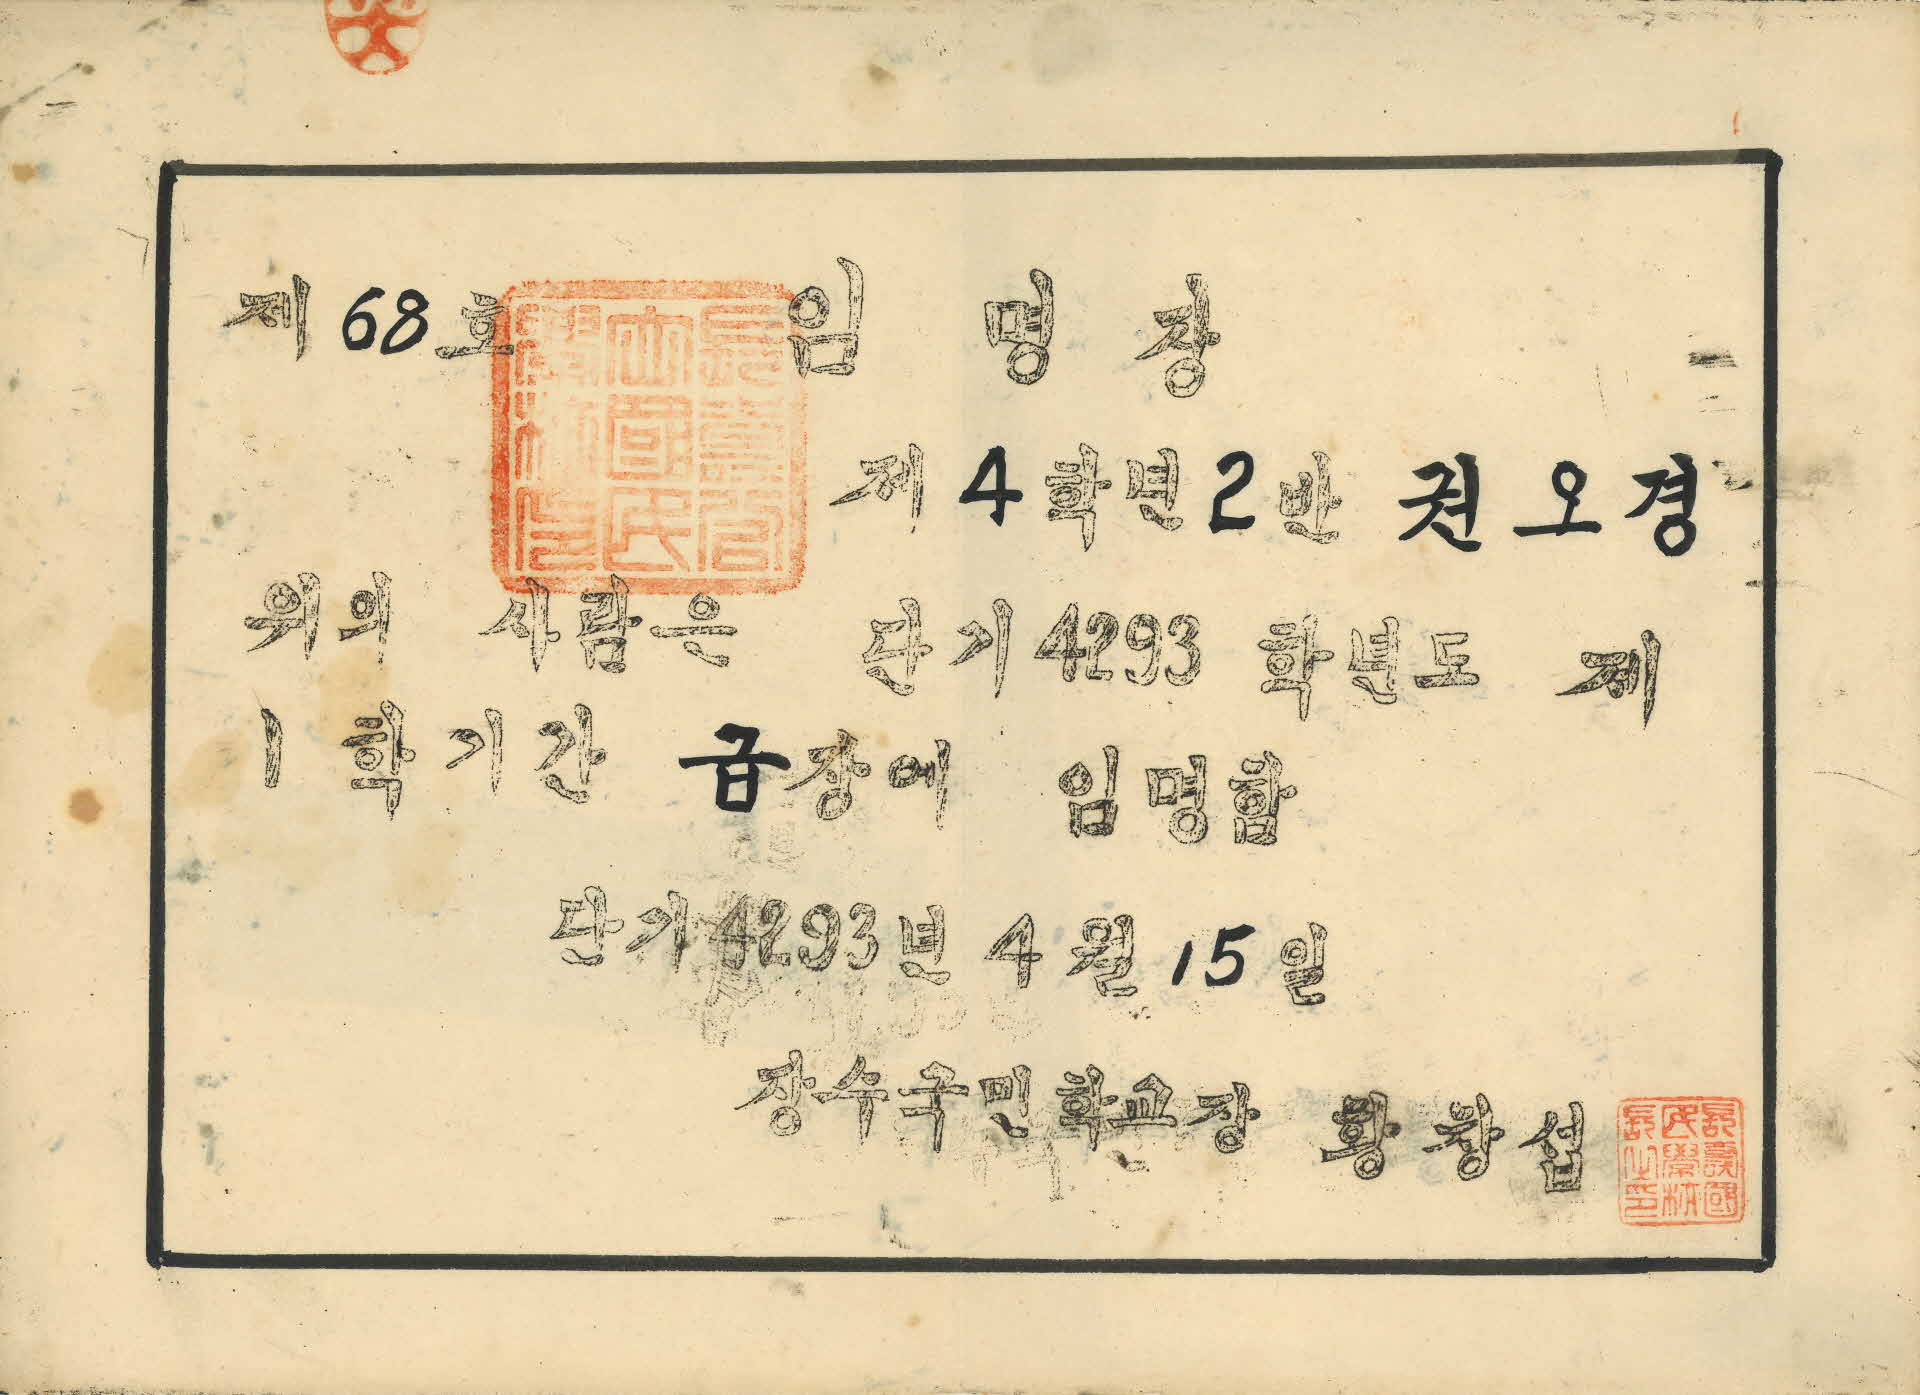 제 68 호 임 명 장
제 4 학년 2 반 권 오 경
위의 사람은 단기 4293 학년도 제
1 학기간 급장에 임명함
단기 4293년 4월 15일
장수국민학교장 황창섭